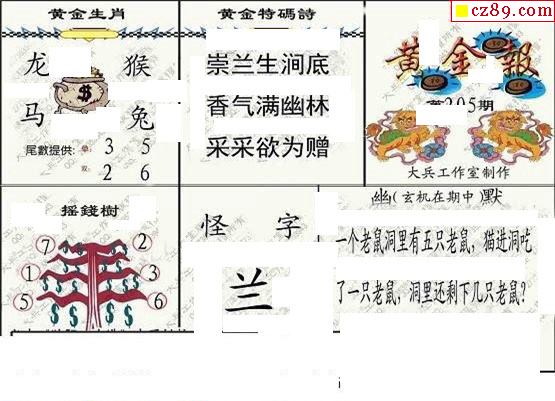 cz89.com
黄金生肖
龙 猴
马 兔
尾數提供: 單: 3 5
双: 2 6
黄金特碼詩
崇兰生涧底
香气满幽林
采采欲为赠
黄金報
205期
大兵工作室制作
摇錢樹
7 2
1 3
5 6
怪 字
兰
幽(玄机在期中)默
一个老鼠洞里有五只老鼠，猫进洞吃
了一只老鼠，洞里还剩下几只老鼠?